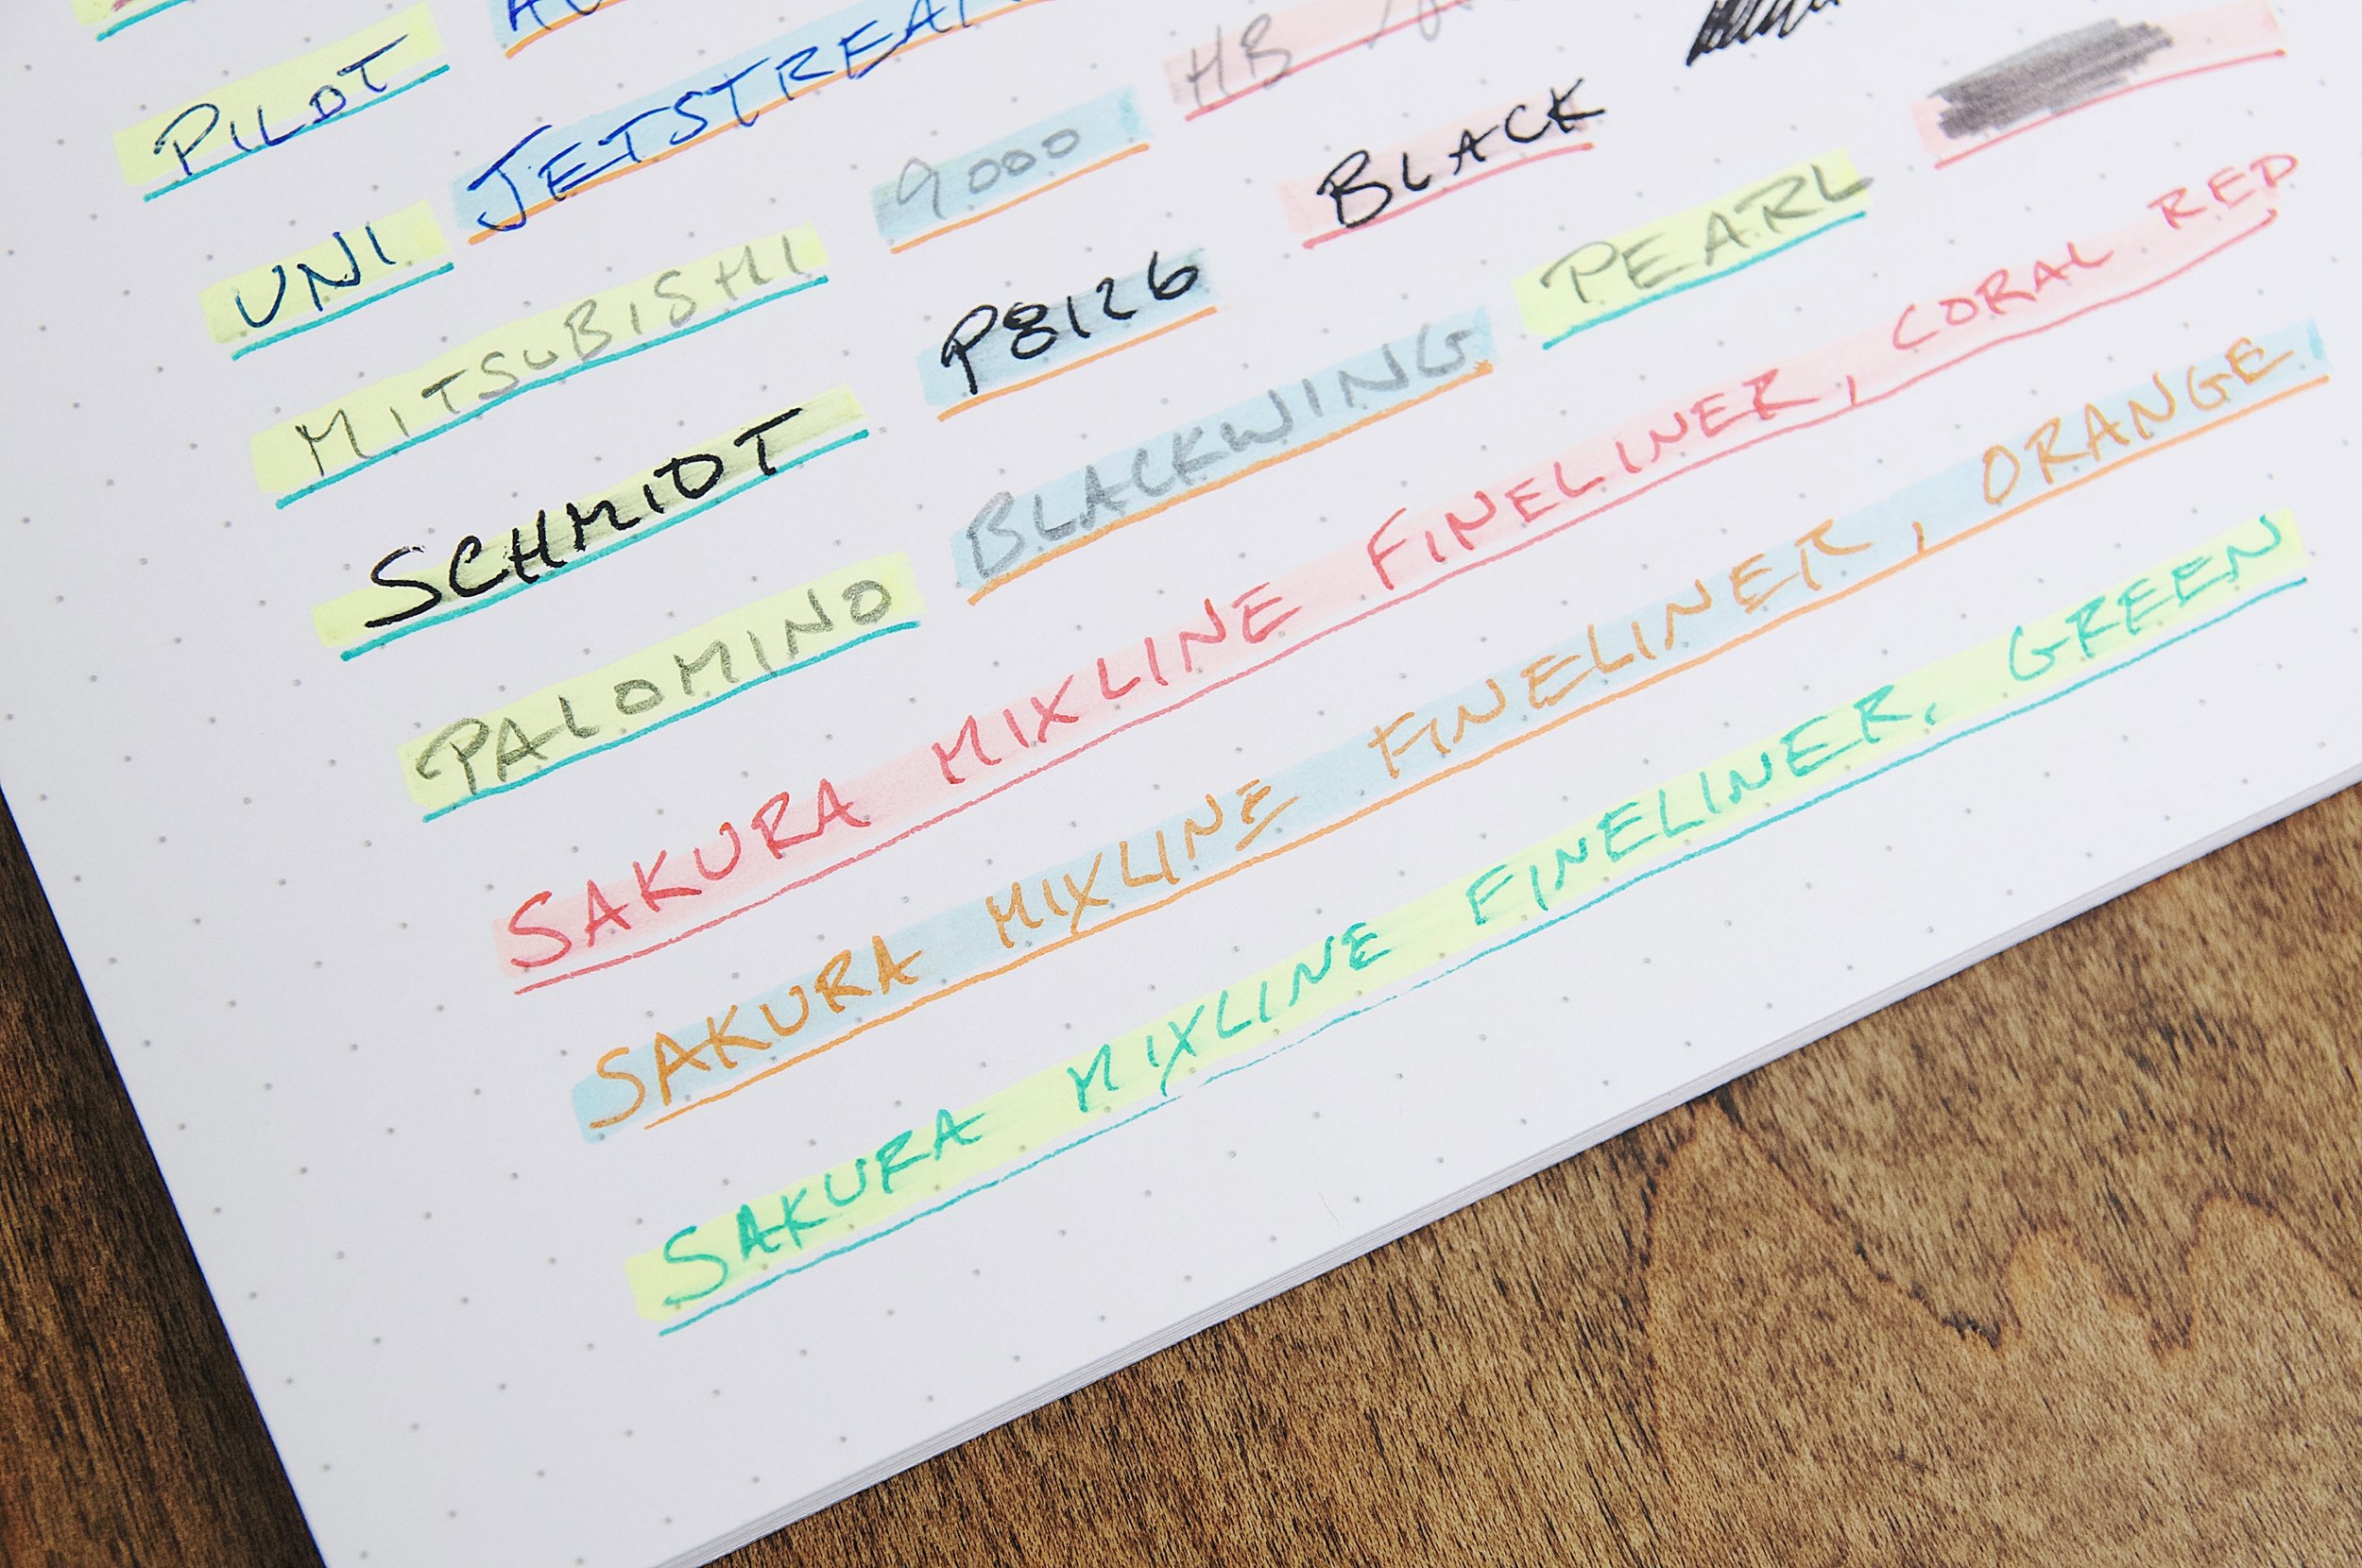 PILOT
UNI JETSTREAM
MITSUBISHI 9000 HB
SCHMIDT P8126 BLACK
PALOMINO BLACKWING PEARL
SAKURA MIXLINE FINELINER, CORAL RED
SAKURA MIXLINE FINELINER, ORANGE
SAKURA MIXLINE FINELINER, GREEN